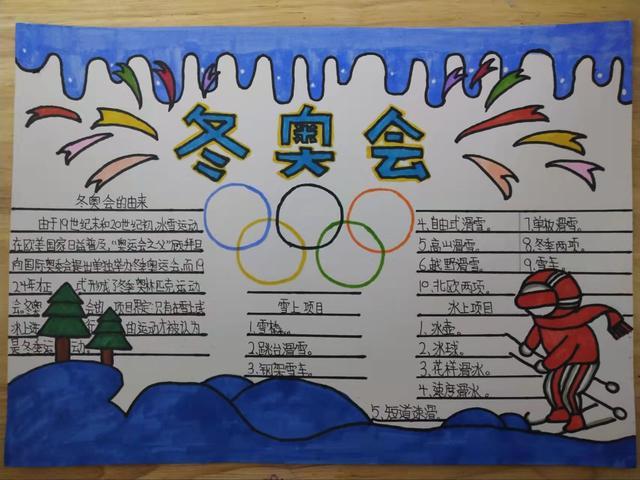 冬奥会
冬奥会的由来
由于19世纪末和20世纪初,冰雪运动
在欧美国家日益普及,"奥运会之父"顾拜旦
向国际奥委会提出单独举办冬奥运会,而19
24年 式形成了冬季奥林匹克运动
会.冬奥 会的项目限定:只有在雪上或
冰上 行 的运动才被认为
是冬季运 动。
雪上项目
1.雪橇。
2.跳台滑雪。
3.钢架雪车。
4.自由式滑雪。
5.高山滑雪。
6.越野滑雪。
7.单板滑雪。
8.冬季两项。
9.雪车。
10.北欧两项。
冰上项目
1.冰壶。
2.冰球。
3.花样滑冰。
4.速度滑冰。
5.短道速滑。